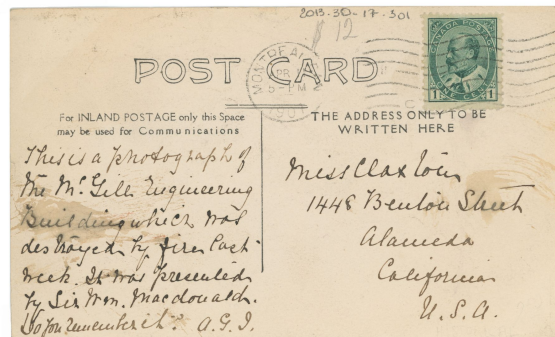 2013-30-17-301
12
CANADA POSTAGE
1 1
MONTREAL
PM
POST CARD
For INLAND POSTAGE only this Space
may be used for Communications
THE ADDRESS ONLY TO BE
WRITTEN HERE
This is a photograph of
the McGill Engineering
Building which was
destroyed by fire last
week. It was presented
by Sir Wm. Macdonald.
Do you remember it? A.G.I.
Miss Claxton
1448 Benton Street
Alameda
California
U.S.A.